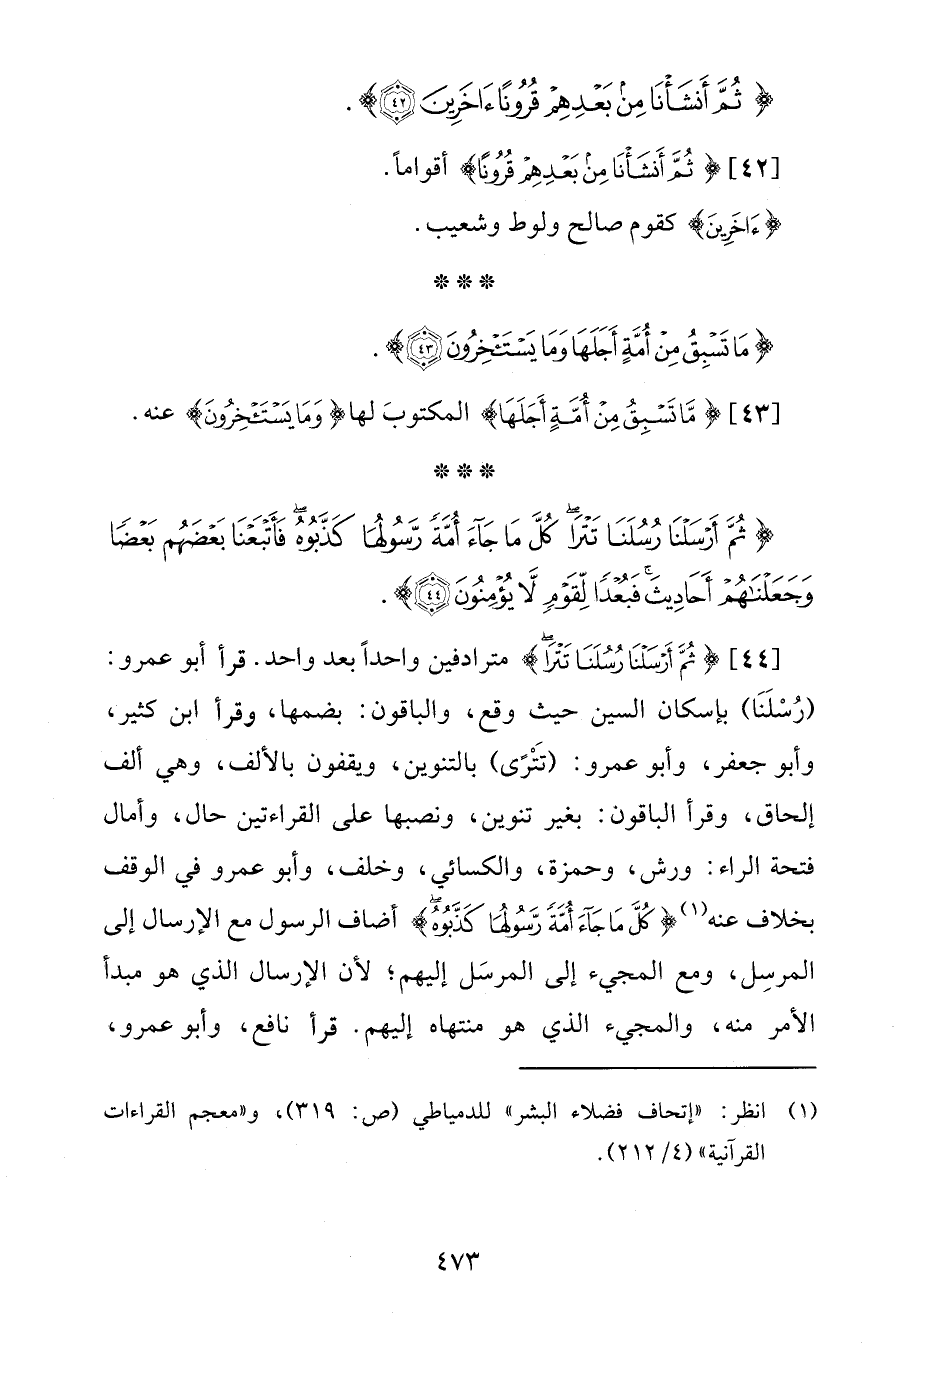 ﴿ ثُمَّ أَنشَأْنَا مِنۢ بَعْدِهِمْ قُرُونًا ءَاخَرِينَ ٤٢﴾ .
[٤٢] ﴿ ثُمَّ أَنشَأْنَا مِنۢ بَعْدِهِمْ قُرُونًا﴾ أقواماً.
﴿ءَاخَرِينَ﴾ كقوم صالح ولوط وشعيب .
* * *
﴿ مَا تَسْبِقُ مِنْ أُمَّةٍ أَجَلَهَا وَمَا يَسْتَـْٔخِرُونَ ٤٣﴾ .
[٤٣] ﴿ مَّا تَسْبِقُ مِنْ أُمَّةٍ أَجَلَهَا﴾ المكتوبَ لها ﴿ وَمَا يَسْتَـْٔخِرُونَ﴾ عنه.
* * *
﴿ ثُمَّ أَرْسَلْنَا رُسُلَنَا تَتْرَاۖ كُلَّ مَا جَآءَ أُمَّةً رَّسُولُهَا كَذَّبُوهُۖ فَأَتْبَعْنَا بَعْضَهُم بَعْضًا
وَجَعَلْنَٰهُمْ أَحَادِيثَۚ فَبُعْدًا لِّقَوْمٍ لَّا يُؤْمِنُونَ ٤٤﴾ .
[٤٤] ﴿ ثُمَّ أَرْسَلْنَا رُسُلَنَا تَتْرَاۖ﴾ مترادفين واحداً بعد واحد. قرأ أبو عمرو:
(رُسْلَنَا) بإسكان السين حيث وقع، والباقون: بضمها، وقرأ ابن كثير،
وأبو جعفر، وأبو عمرو: (تَتْرًى) بالتنوين، ويقفون بالألف، وهي ألف
إلحاق، وقرأ الباقون: بغير تنوين، ونصبها على القراءتين حال، وأمال
فتحة الراء: ورش، وحمزة، والكسائي، وخلف، وأبو عمرو في الوقف
بخلاف عنه(١) ﴿ كُلَّ مَا جَآءَ أُمَّةً رَّسُولُهَا كَذَّبُوهُۖ﴾ أضاف الرسول مع الإرسال إلى
المرسِل، ومع المجيء إلى المرسَل إليهم؛ لأن الإرسال الذي هو مبدأ
الأمر منه، والمجيء الذي هو منتهاه إليهم. قرأ نافع، وأبو عمرو،
(١) انظر: «إتحاف فضلاء البشر» للدمياطي (ص: ٣١٩)، و«معجم القراءات
القرآنية» (٤/ ٢١٢).
٤٧٣